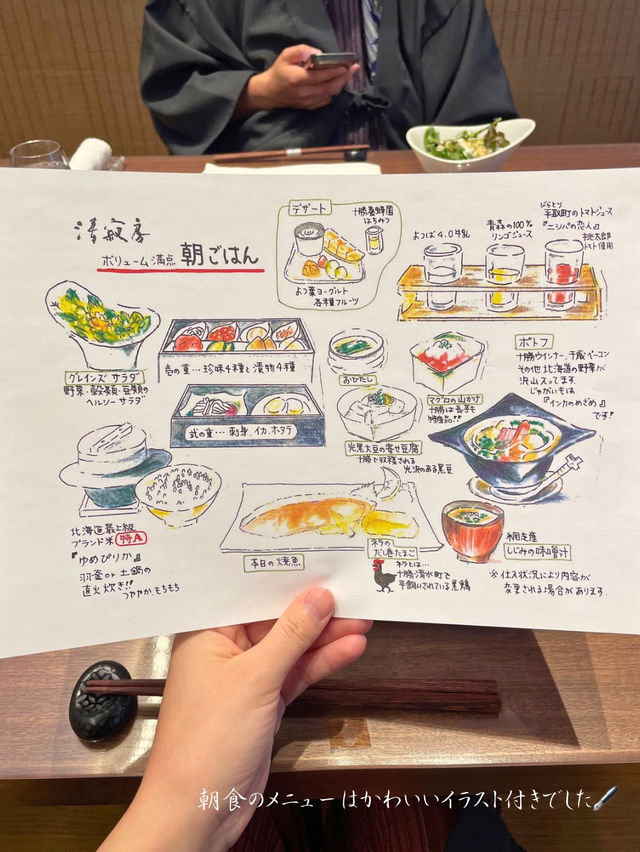 清寂房
ボリューム満点 朝ごはん
デザート
十勝養蜂園
はちみつ
よつ葉ヨーグルト
各種フルーツ
よつば 4.0牛乳
青森の100%
リンゴジュース
びらとり
平取町のトマトジュース
『ニシパの恋人』
桃太郎
トマト使用
グレインズ サラダ
野菜・穀類・豆類の
ヘルシーサラダ
壱の重…珍味4種と漬物4種
弐の重…刺身、イカ、ホタテ
おひたし
マグロの山かけ
十勝は長芋も
特産品!!
光黒大豆の寄せ豆腐
十勝で収穫される
光沢のある黒豆
ポトフ
十勝ウインナー、千歳ベーコン
その他 北海道の野菜が
沢山入ってます。
じゃがいもは
『インカのめざめ』
です!
北海道最上級
ブランド米 特A
『ゆめぴりか』
羽釜or土鍋の
直火炊き!!
つややか、もちもち
本日の焼魚
ネラの
だし巻たまご
ネラとは…
十勝清水町で
平飼いされている黒鶏
網走産
しじみの味噌汁
※仕入状況により内容が
変更される場合があります。
朝食のメニューはかわいいイラスト付きでした🖋